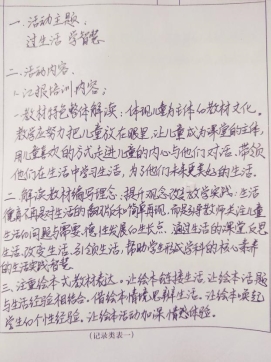 一.活动主题,
过生活 学智慧
二.活动内容.
1.汇报培训内容;
一.教材特色整体解读:体现儿童为主体的教材文化。
教师应努力把儿童放在眼里,让儿童成为课堂的主体,
用儿童喜欢的方式走进儿童的内心与他们对话,带领
他们在生活中学习生活,为了他们未来更美好的生活.
二.解读教材编写理念:提升观念改变教学实践,生活
再是对生活的和简单再现,而是引导教师关注儿童
生活的问题与需要,生长点.通过生活的课堂反思
生活,改变生活,引领生活,帮助学生形成学科的核心素养
的生活实践智慧.
三.注重绘本式教材表达。让绘本链接生活,让绘本话题
与生活经验相结合.借绘本情境思辨生活.让绘本唤起
学生的个性经验.让绘本活动加深情感体验.
(记录类表一)